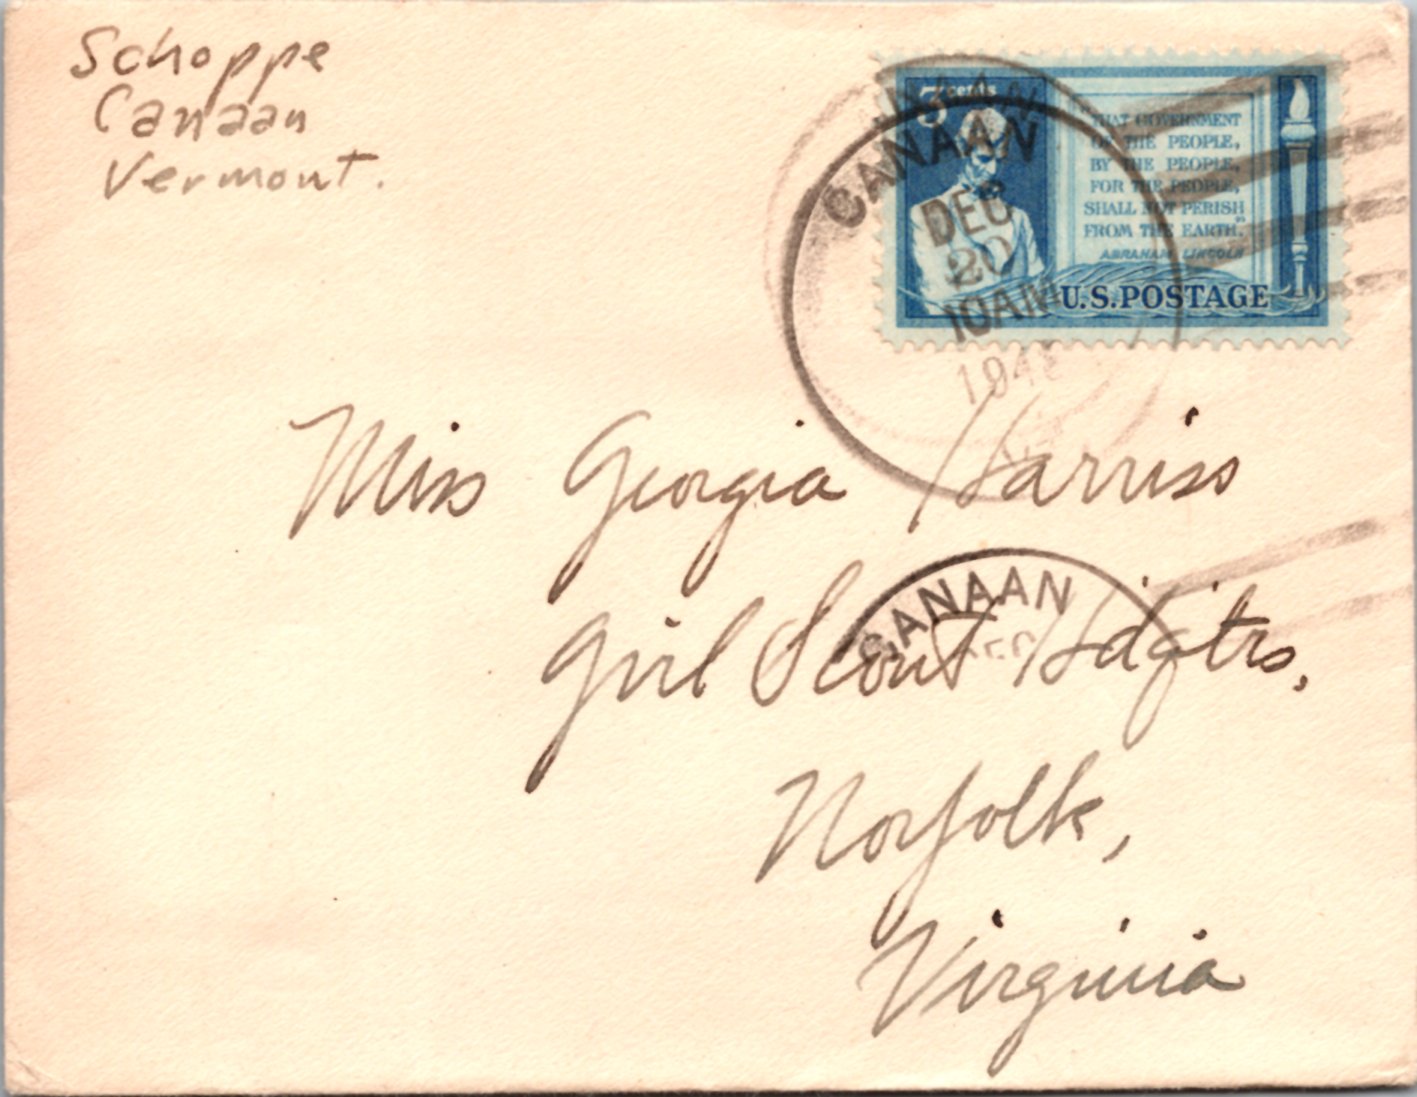 Schoppe
Canaan
Vermont.
3 cents
"THAT GOVERNMENT
OF THE PEOPLE,
BY THE PEOPLE,
FOR THE PEOPLE,
SHALL NOT PERISH
FROM THE EARTH."
ABRAHAM LINCOLN
U.S.POSTAGE
CANAAN
DEC
20
10AM
Miss Georgia Harriss
CANAAN
DEC
Girl Scout Hdqtrs,
Norfolk,
Virginia